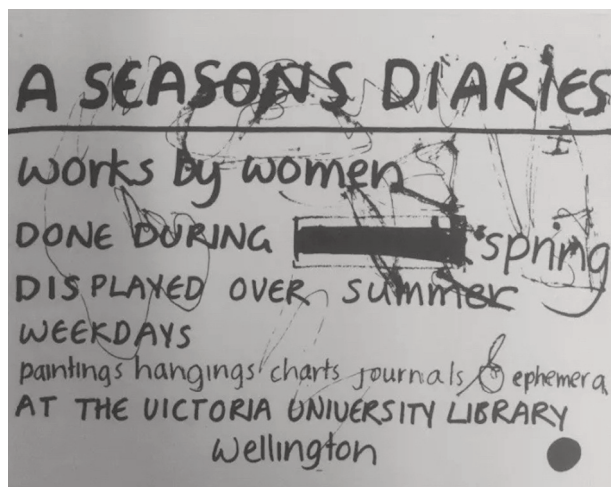 A SEASONS DIARIES
works by women
DONE DURING spring
DISPLAYED OVER summer
WEEKDAYS
paintings hangings charts journals & ephemera
AT THE VICTORIA UNIVERSITY LIBRARY
Wellington